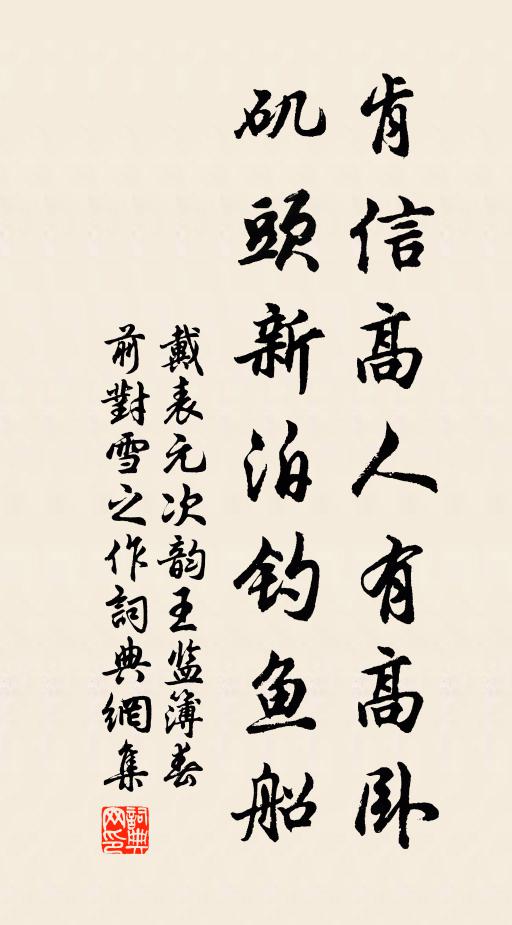 肯信高人有高卧
矶頭新泊钓鱼船
戴表元次韵王监簿春
前對雪之作詞典網集
詞典网印